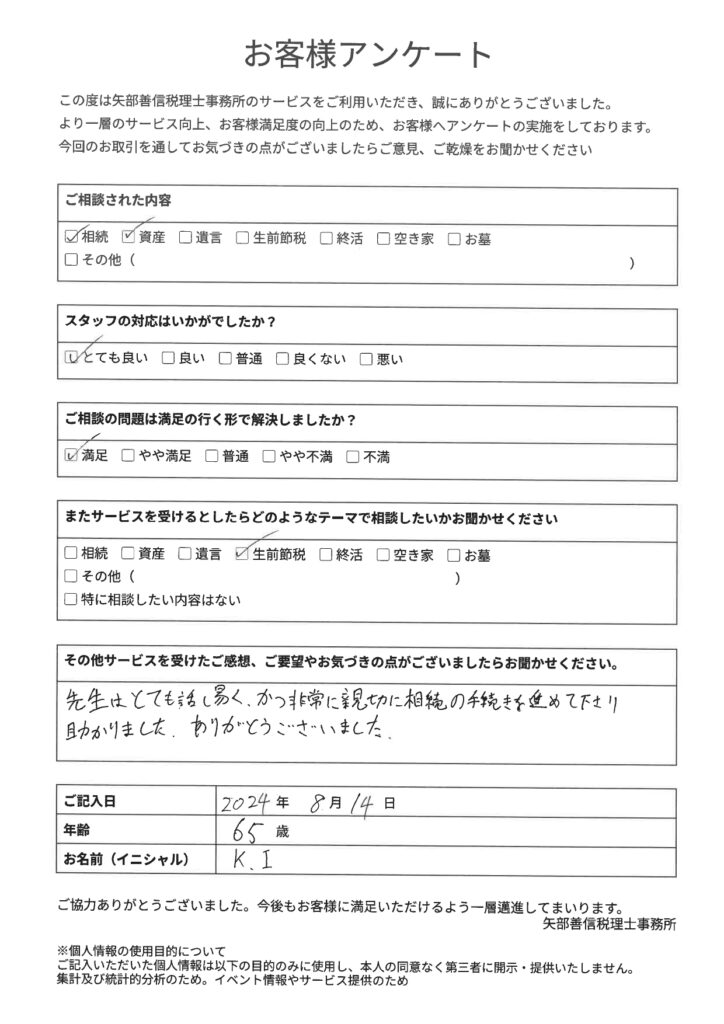 お客様アンケート
この度は矢部善信税理士事務所のサービスをご利用いただき、誠にありがとうございました。
より一層のサービス向上、お客様満足度の向上のため、お客様へアンケートの実施をしております。
今回のお取引を通してお気づきの点がございましたらご意見、ご乾燥をお聞かせください
ご相談された内容
☑相続 ☑資産 □遺言 □生前節税 □終活 □空き家 □お墓
□その他（ ）
スタッフの対応はいかがでしたか？
☑とても良い □良い □普通 □良くない □悪い
ご相談の問題は満足の行く形で解決しましたか？
☑満足 □やや満足 □普通 □やや不満 □不満
またサービスを受けるとしたらどのようなテーマで相談したいかお聞かせください
□相続 □資産 □遺言 ☑生前節税 □終活 □空き家 □お墓
□その他（ ）
□特に相談したい内容はない
その他サービスを受けたご感想、ご要望やお気づきの点がございましたらお聞かせください。
先生はとても話し易く、かつ非常に親切に相続の手続きを進めて下さり
助かりました。ありがとうございました。
ご記入日 2024年 8月14日
年齢 65歳
お名前（イニシャル） K.I
ご協力ありがとうございました。今後もお客様に満足いただけるよう一層邁進してまいります。
矢部善信税理士事務所
※個人情報の使用目的について
ご記入いただいた個人情報は以下の目的のみに使用し、本人の同意なく第三者に開示・提供いたしません。
集計及び統計的分析のため。イベント情報やサービス提供のため